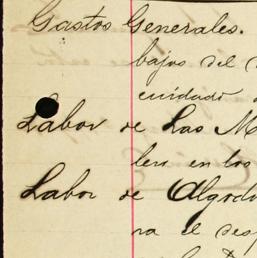 Gastos Generales.
bajos del
cuidado
Labor de Las M
lera en los
Labor de Algodo
ra el des